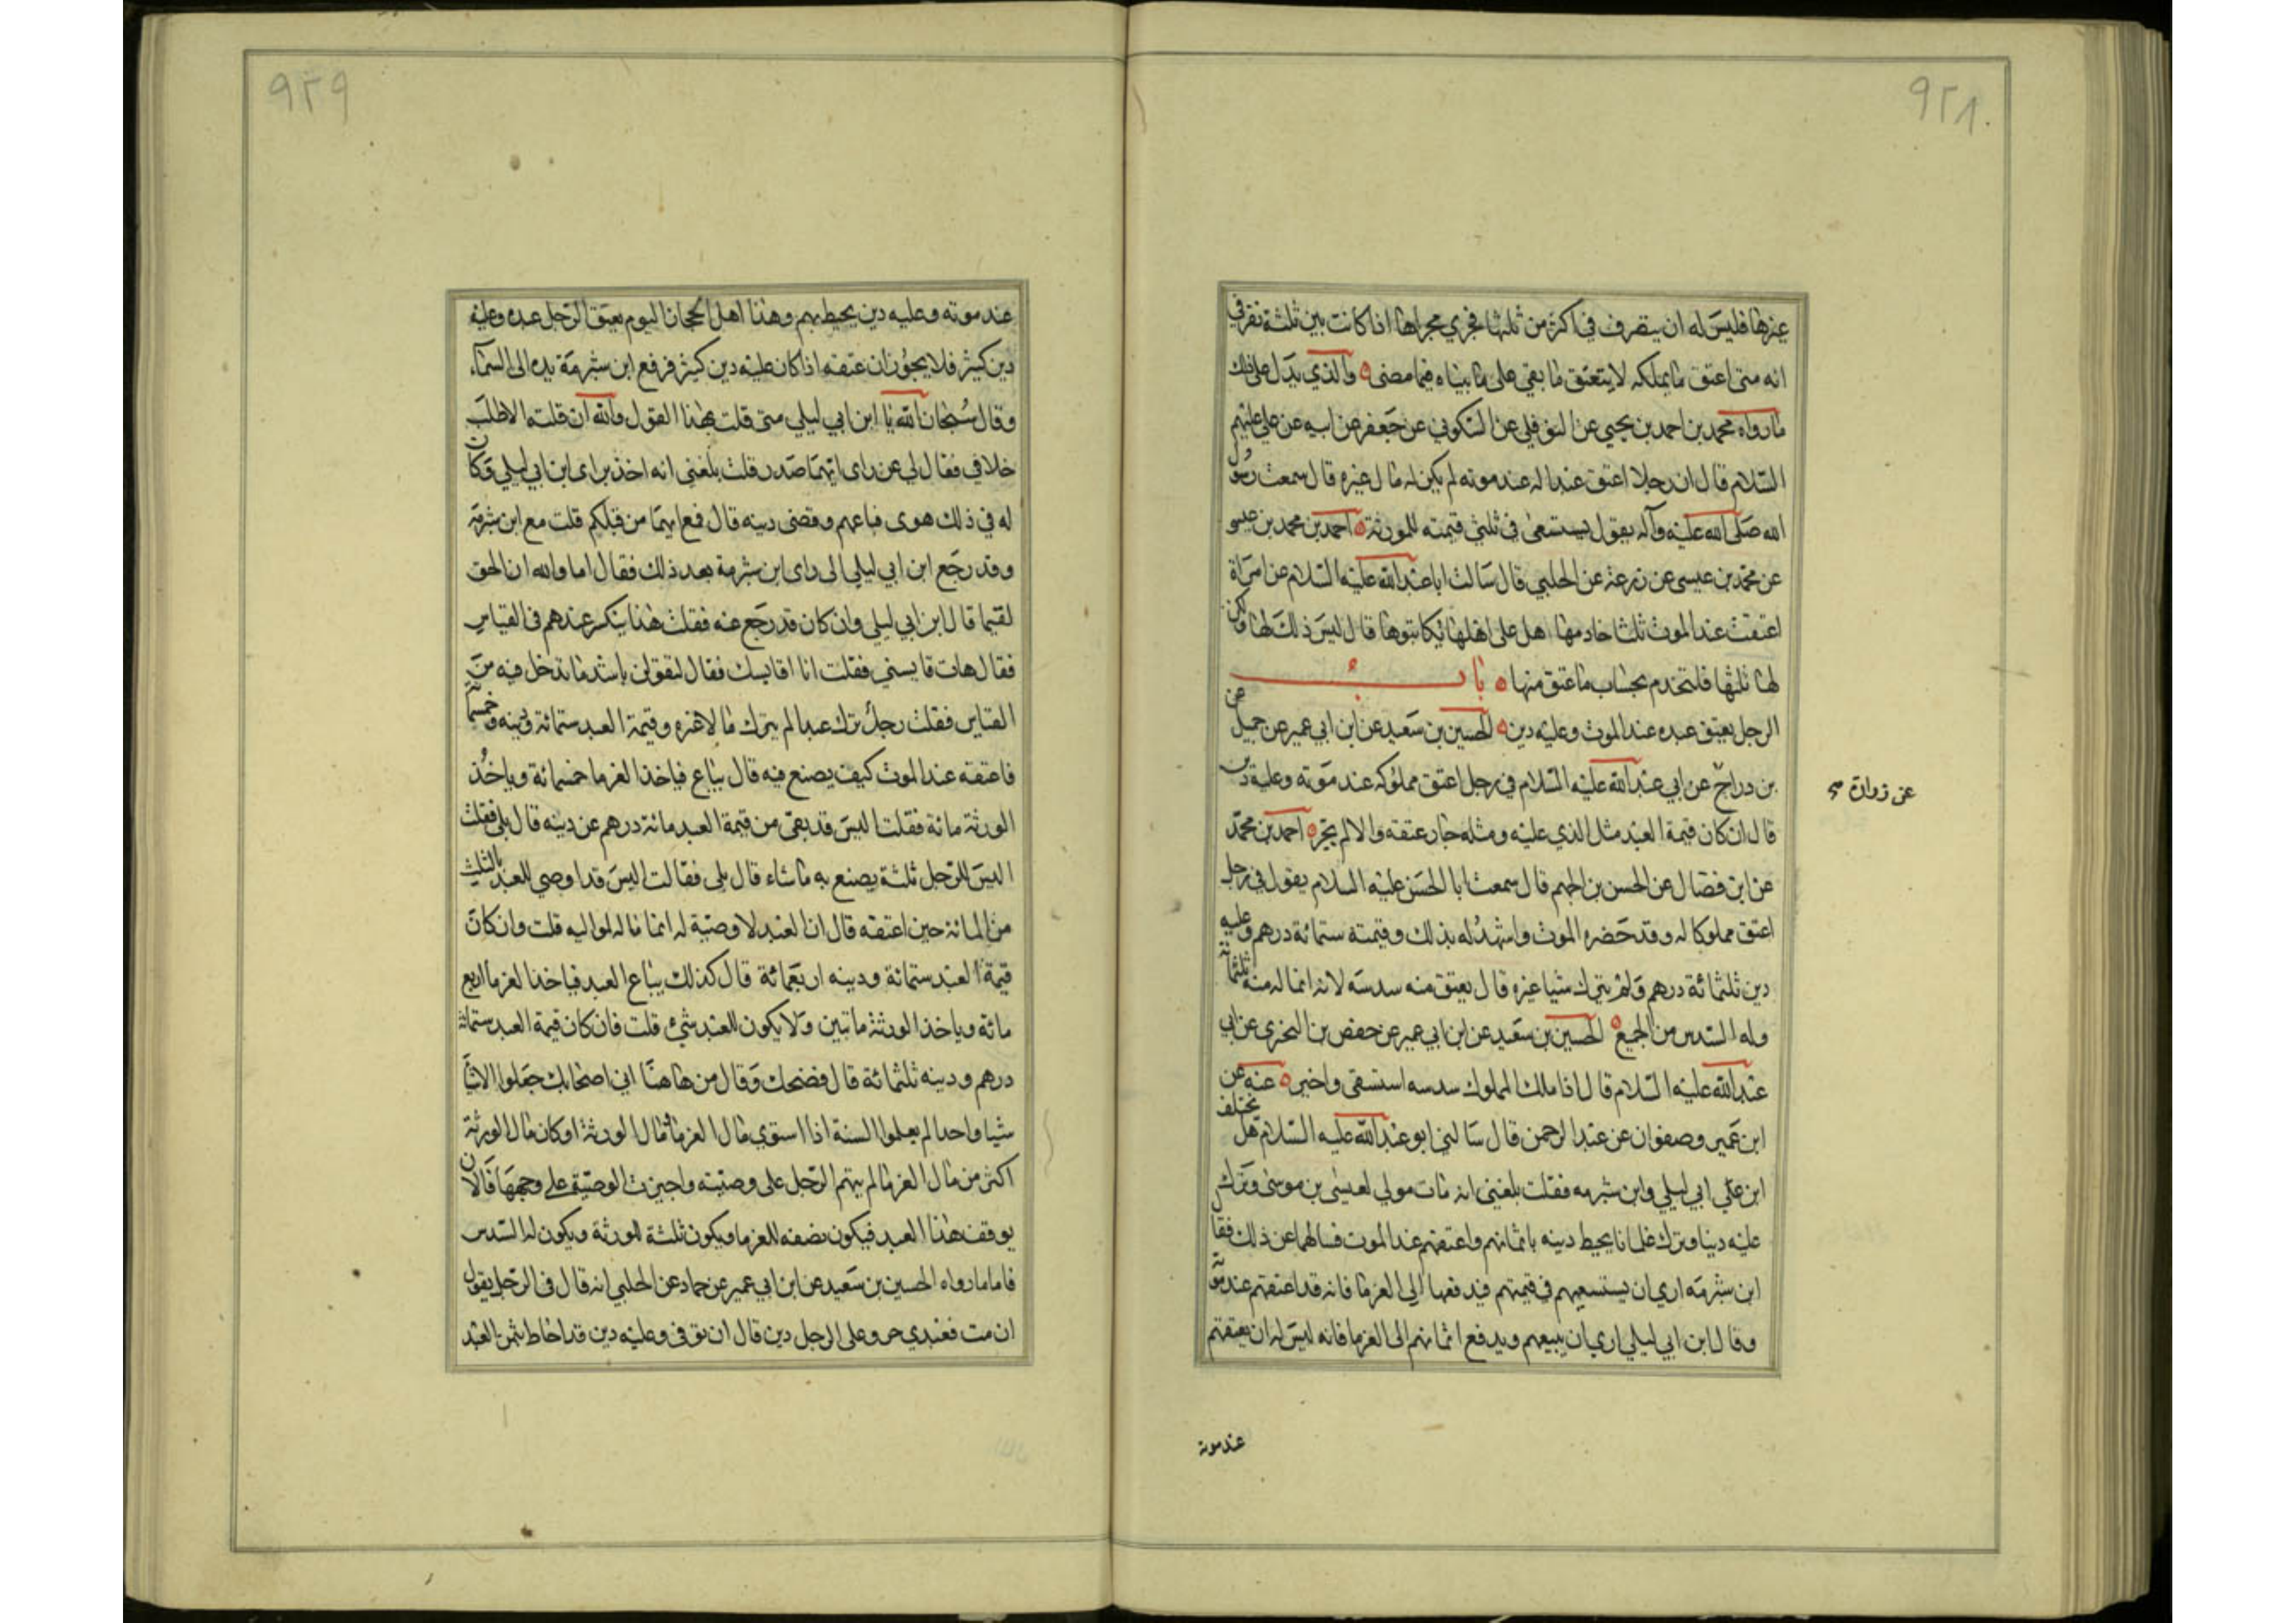 ٩٢٨
غيرها فليس له ان يتصرف في اكثر من ثلثها فجري مجراها اذا كانت بين ثلثة نفر في
انه متى اعتق ما يملكه لا ينعتق ما بقي على ما بيناه فيما مضى ۵ والذي يدل على ذلك
ما رواه محمد بن احمد بن يحيى عن النوفلي عن السكوني عن جعفر عن ابيه عن علي عليهم
السلام قال ان رجلا اعتق عبدا له عند موته لم يكن له مال غيره قال سمعت رسول
الله صلى الله عليه وآله يقول يستسعى في ثلثي قيمته للورثة ۵ احمد بن محمد بن عيسى
عن محمد بن عيسى عن زرعة عن الحلبي قال سالت ابا عبد الله عليه السلام عن امراة
اعتقت عند الموت ثلث خادمها هل على اهلها ان يكاتبوها قال ليس ذلك لها ولكن
لها ثلثها فلتخدم بحساب ما عتق منها ۵ باب
الرجل يعتق عبده عند الموت وعليه دين ۵ الحسين بن سعيد عن ابن ابي عمير عن جميل
بن دراج عن ابي عبد الله عليه السلام في رجل اعتق مملوكه عند موته وعليه دين
عن زرارة
قال ان كان قيمة العبد مثل الذي عليه ومثله جاز عتقه والا لم يجز ۵ احمد بن محمد
عن ابن فضال عن الحسن بن الجهم قال سمعت ابا الحسن عليه السلام يقول في رجل
اعتق مملوكا له وقد حضره الموت واشهد له بذلك وقيمته ستمائة درهم وعليه
دين ثلثمائة درهم ولم يترك شيا غيره قال يعتق منه سدسه لانه انما له منه ثلثمائة
وله السدس من الجميع ۵ الحسين بن سعيد عن ابن ابي عمير عن حفص بن البختري عن ابي
عبد الله عليه السلام قال اذا ملك المملوك سدسه استسقى واخير ۵ عنه عن
ابن عمير وصفوان عن عبد الرحمن قال سالني ابو عبد الله عليه السلام هل يختلف
ابن علي ابي ليلي وابن شبرمه فقلت بلغني انه مات مولي لعيسى بن موسى وترك
عليه دينا وترك غلمانا يحيط دينه باثمانهم واعتقهم عند الموت فسالهما عن ذلك فقال
ابن شبرمه اري ان يستسعيهم في قيمتهم فيدفعها الي الغرما فانه قد اعتقهم عند موته
وقال ابن ابي ليلي اري ان يبيعهم ويدفع اثمانهم الى الغرما فانه ليس له ان يعتقهم
عند موته
٩٢٩
عند موته وعليه دين يحيط بهم وهذا اهل الحجاز اليوم يعتق الرجل عبده وعليه
دين كثير فلا يجوزان عتقه اذا كان عليه دين كثير فرفع ابن شبرمة يده الى السماء
وقال سبحان الله يا ابن ابي ليلي متى قلت بهذا القول والله ان قلته الا طلب
خلافي فقال لي عن راى ايهما صدر قلت بلغني انه اخذ براى ابن ابي ليلي وكان
له في ذلك هوى فباعهم وقضى دينه قال فمع ايهما من قبلكم قلت مع ابن شبرمة
وقد رجع ابن ابي ليلي الى راى ابن شبرمة بعد ذلك فقال اما والله ان الحق
لفيما قال ابن ابي ليلي وان كان قد رجع عنه فقلت هذا ينكسر عندهم في القياس
فقال هات قايسني فقلت انا اقايسك فقال لتقولن باشد ما تدخل فيه من
القياس فقلت رجل ترك عبدا لم يترك مالا غيره وقيمة العبد ستمائة ودينه خمسمائة
فاعتقه عند الموت كيف يصنع فيه قال يباع فياخذ الغرما خمسمائة وياخذ
الورثة مائة فقلت اليس قد بقى من قيمة العبد مائة درهم عن دينه قال بلى فقلت
اليس للرجل ثلثة يصنع به ما شاء قال بلى فقالت اليس قد اوصي للعبد بالثلث
من المائة حين اعتقه قال ان العبد لا وصية له انما ماله لمواليه قلت وان كان
قيمة العبد ستمائة ودينه اربعمائة قال كذلك يباع العبد فياخذ الغرما اربع
مائة وياخذ الورثة ماتين ولا يكون للعبد شيء قلت فان كان قيمة العبد ستمائة
درهم ودينه ثلثمائة قال فضحك وقال من هاهنا اتي اصحابك جعلوا الاشيا
شيا واحدا لم يعلموا السنة اذا استوي مال الغرما ومال الورثة او كان مال الورثة
اكثر من مال الغرما لم يتهم الرجل على وصيته واجيزت الوصية على وجهها فالان
يوقف هذا العبد فيكون نصفه للغرما ويكون ثلثة للورثة ويكون له السدس
فاما ما رواه الحسين بن سعيد عن ابن ابي عمير عن حماد عن الحلبي انه قال في الرجل يقول
ان مت فعبدي حر وعلى الرجل دين قال ان توفى وعليه دين قد احاط بثمن العبد